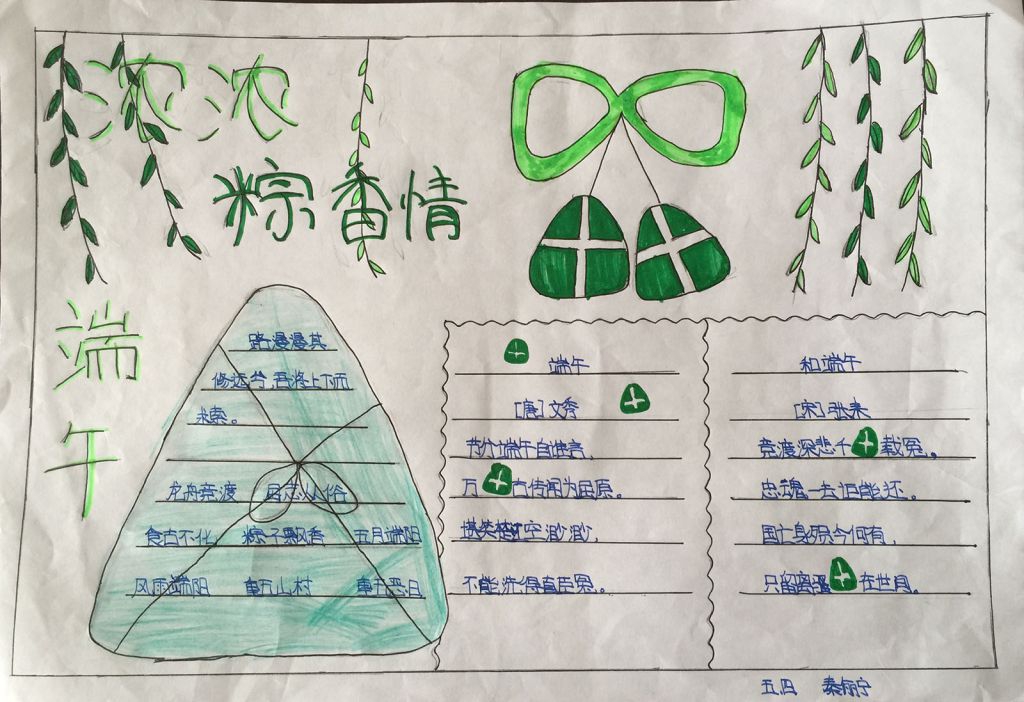 浓浓
粽香情
端
午
路漫漫其
修远兮,吾将上下而
求索。
龙舟竞渡
食古不化 粽子飘香 五月端阳
风雨端阳 重五山村 重五恶日
端午
[唐]文秀
节分端午自谁言,
万古传闻为屈原。
堪笑楚江空渺渺,
不能洗得直臣冤。
和端午
[宋]张耒
竞渡深悲千载冤。
忠魂一去讵能还。
国亡身殒今何有,
只留离骚在世间。
五四